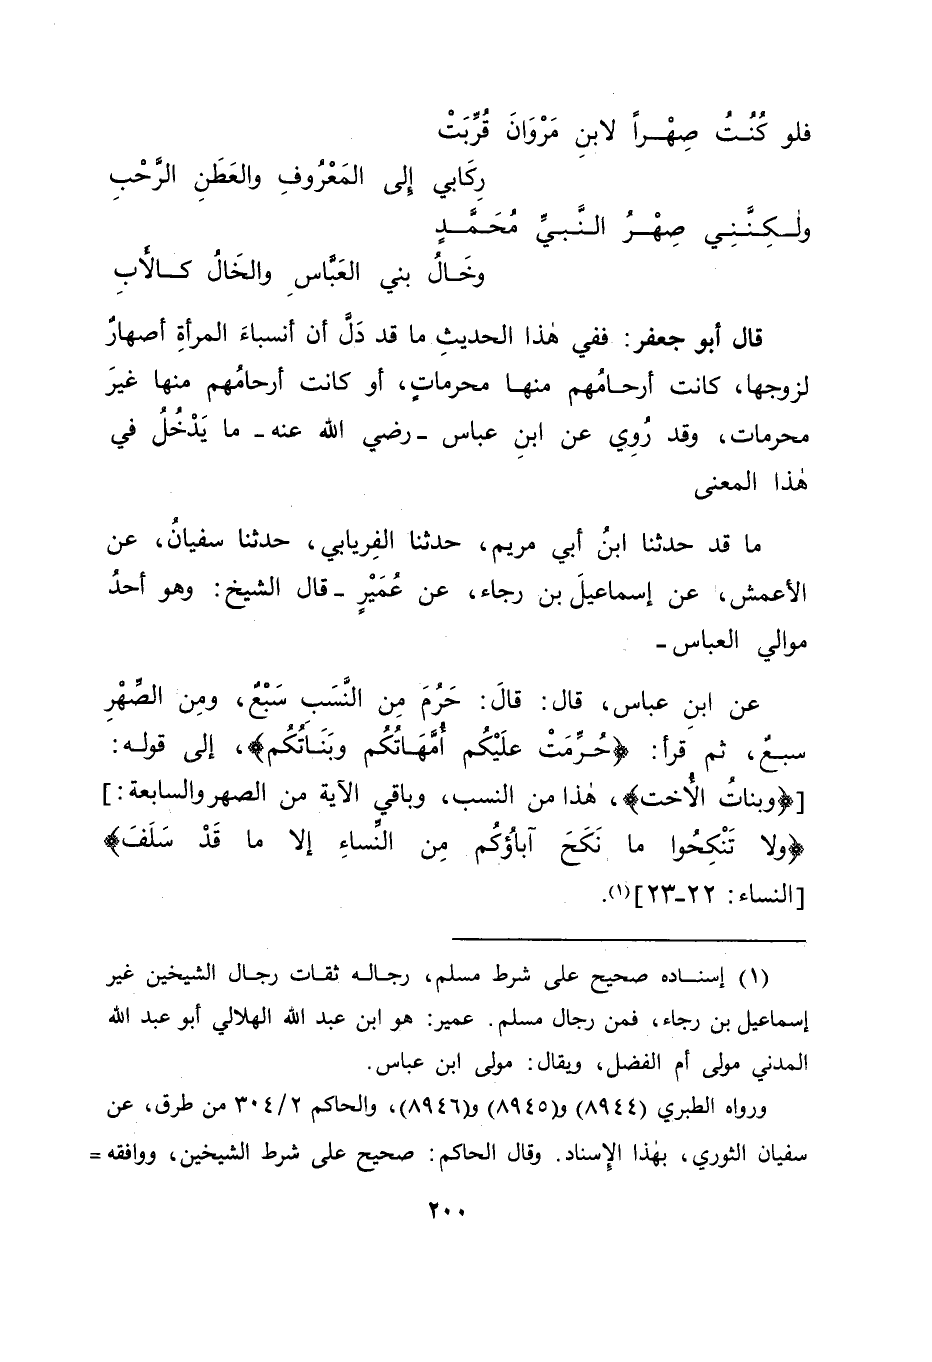 فلو كُنْتُ صِهْـراً لابنِ مَرْوَانَ قُرِّبَتْ
رِكَابي إلى المَعْرُوفِ والعَطَنِ الرَّحْبِ
ولٰـكِـنَّـنِـي صِهْـرُ الـنَّـبـيِّ مُحَـمَّـدٍ
وخَـالُ بني العَبَّاسِ والخَالُ كـالأَبِ
قال أبو جعفر: ففي هٰذا الحديثِ ما قد دَلَّ أن أنسباءَ المرأةِ أصهارٌ
لزوجها، كانت أرحـامُهم منهـا محرماتٍ، أو كانت أرحامُهم منها غيرَ
محرمات، وقد رُوِي عن ابنِ عباس ـ رضي الله عنه ـ ما يَدْخُلُ في
هٰذا المعنى
ما قد حدثنا ابنُ أبي مريم، حدثنا الفِريابي، حدثنا سفيانُ، عن
الأعمش، عن إسماعيلَ بن رجاء، عن عُمَيْرٍ ـ قال الشيخ: وهو أحدُ
موالي العباس ـ
عن ابنِ عباس، قال: قالَ: حَرُمَ مِن النَّسَبِ سَبْعٌ، ومِن الصِّهْرِ
سبعٌ، ثم قرأ: ﴿حُـرِّمَتْ عليْكُم أُمَّهَـاتُكُم وبَنَـاتُكُم﴾، إلى قولـه:
[﴿وبناتُ الأُخت﴾، هٰذا من النسب، وباقي الآية من الصهر والسابعة:]
﴿ولا تَنْكِحُوا ما نَكَحَ آباؤُكُم مِن النِّساءِ إلا ما قَدْ سَلَفَ﴾
[النساء: ٢٢-٢٣](١).
(١) إسنـاده صحيح على شرط مسلم، رجـالـه ثقـات رجـال الشيخين غير
إسماعيل بن رجاء، فمن رجال مسلم. عمير: هو ابن عبد الله الهلالي أبو عبد الله
المدني مولى أم الفضل، ويقال: مولى ابن عباس.
ورواه الطبري (٨٩٤٤) و(٨٩٤٥) و(٨٩٤٦)، والحاكم ٣٠٤/٢ من طرق، عن
سفيان الثوري، بهٰذا الإسناد. وقال الحاكم: صحيح على شرط الشيخين، ووافقه =
٢٠٠